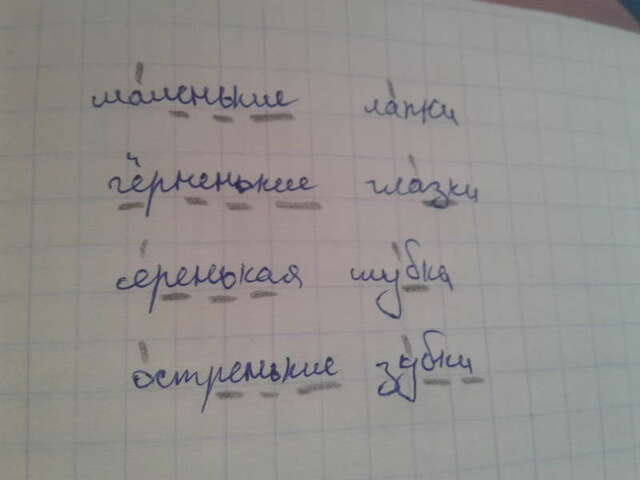 маленькие лапки
чёрненькие глазки
серенькая шубка
остренькие зубки